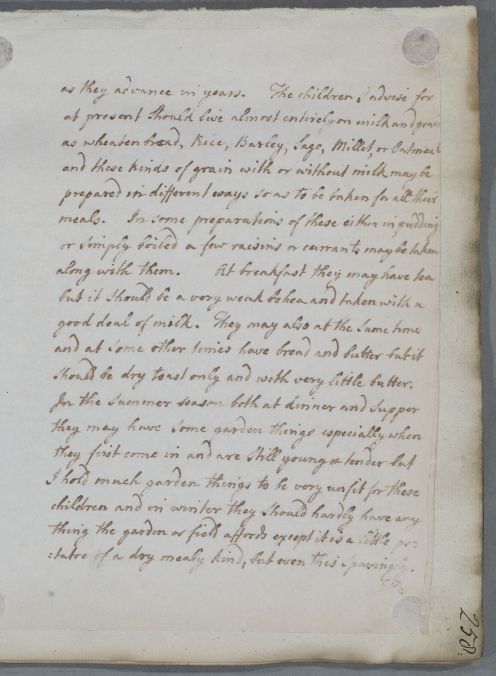 as they advance in years. The children I advise for
at present should live almost entirely on milk and grain
as wheaten bread, Rice, Barley, Sago, Millet, or Oatmeal
and these kinds of grain with or without milk may be
prepared in different ways so as to be taken for all their
meals. In some preparations of these either in pudding
or simply boiled a few raisins or currants may be taken
along with them. At breakfast they may have tea
but it should be a very weak bohea and taken with a
good deal of milk. They may also at the same time
and at some other times have bread and butter but it
should be dry toast only and with very little butter.
In the summer season both at dinner and supper
they may have some garden things especially when
they first come in and are still young & tender but
I hold much garden things to be very unfit for these
children and in winter they should hardly have any
thing the garden or field affords except it is a little po=
:tatoe of a dry mealy kind, but even this sparingly.
258